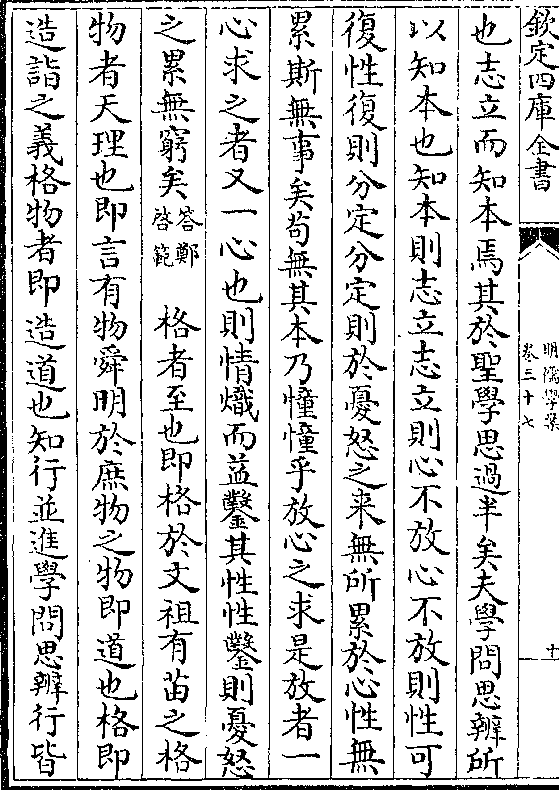 欽定四庫全書
明儒學案
卷三十七
十
也志立而知本焉其於聖學思過半矣夫學問思辨所
以知本也知本則志立志立則心不放心不放則性可
復性復則分定分定則於憂怒之来無所累於心性無
累斯無事矣苟無其本乃憧憧乎放心之求是放者一
心求之者又一心也則情熾而益鑿其性性鑿則憂怒
之累無窮矣答鄭啓範　格者至也即格於文祖有苗之格
物者天理也即言有物舜明於庶物之物即道也格即
造詣之義格物者即造道也知行並進學問思辨行皆